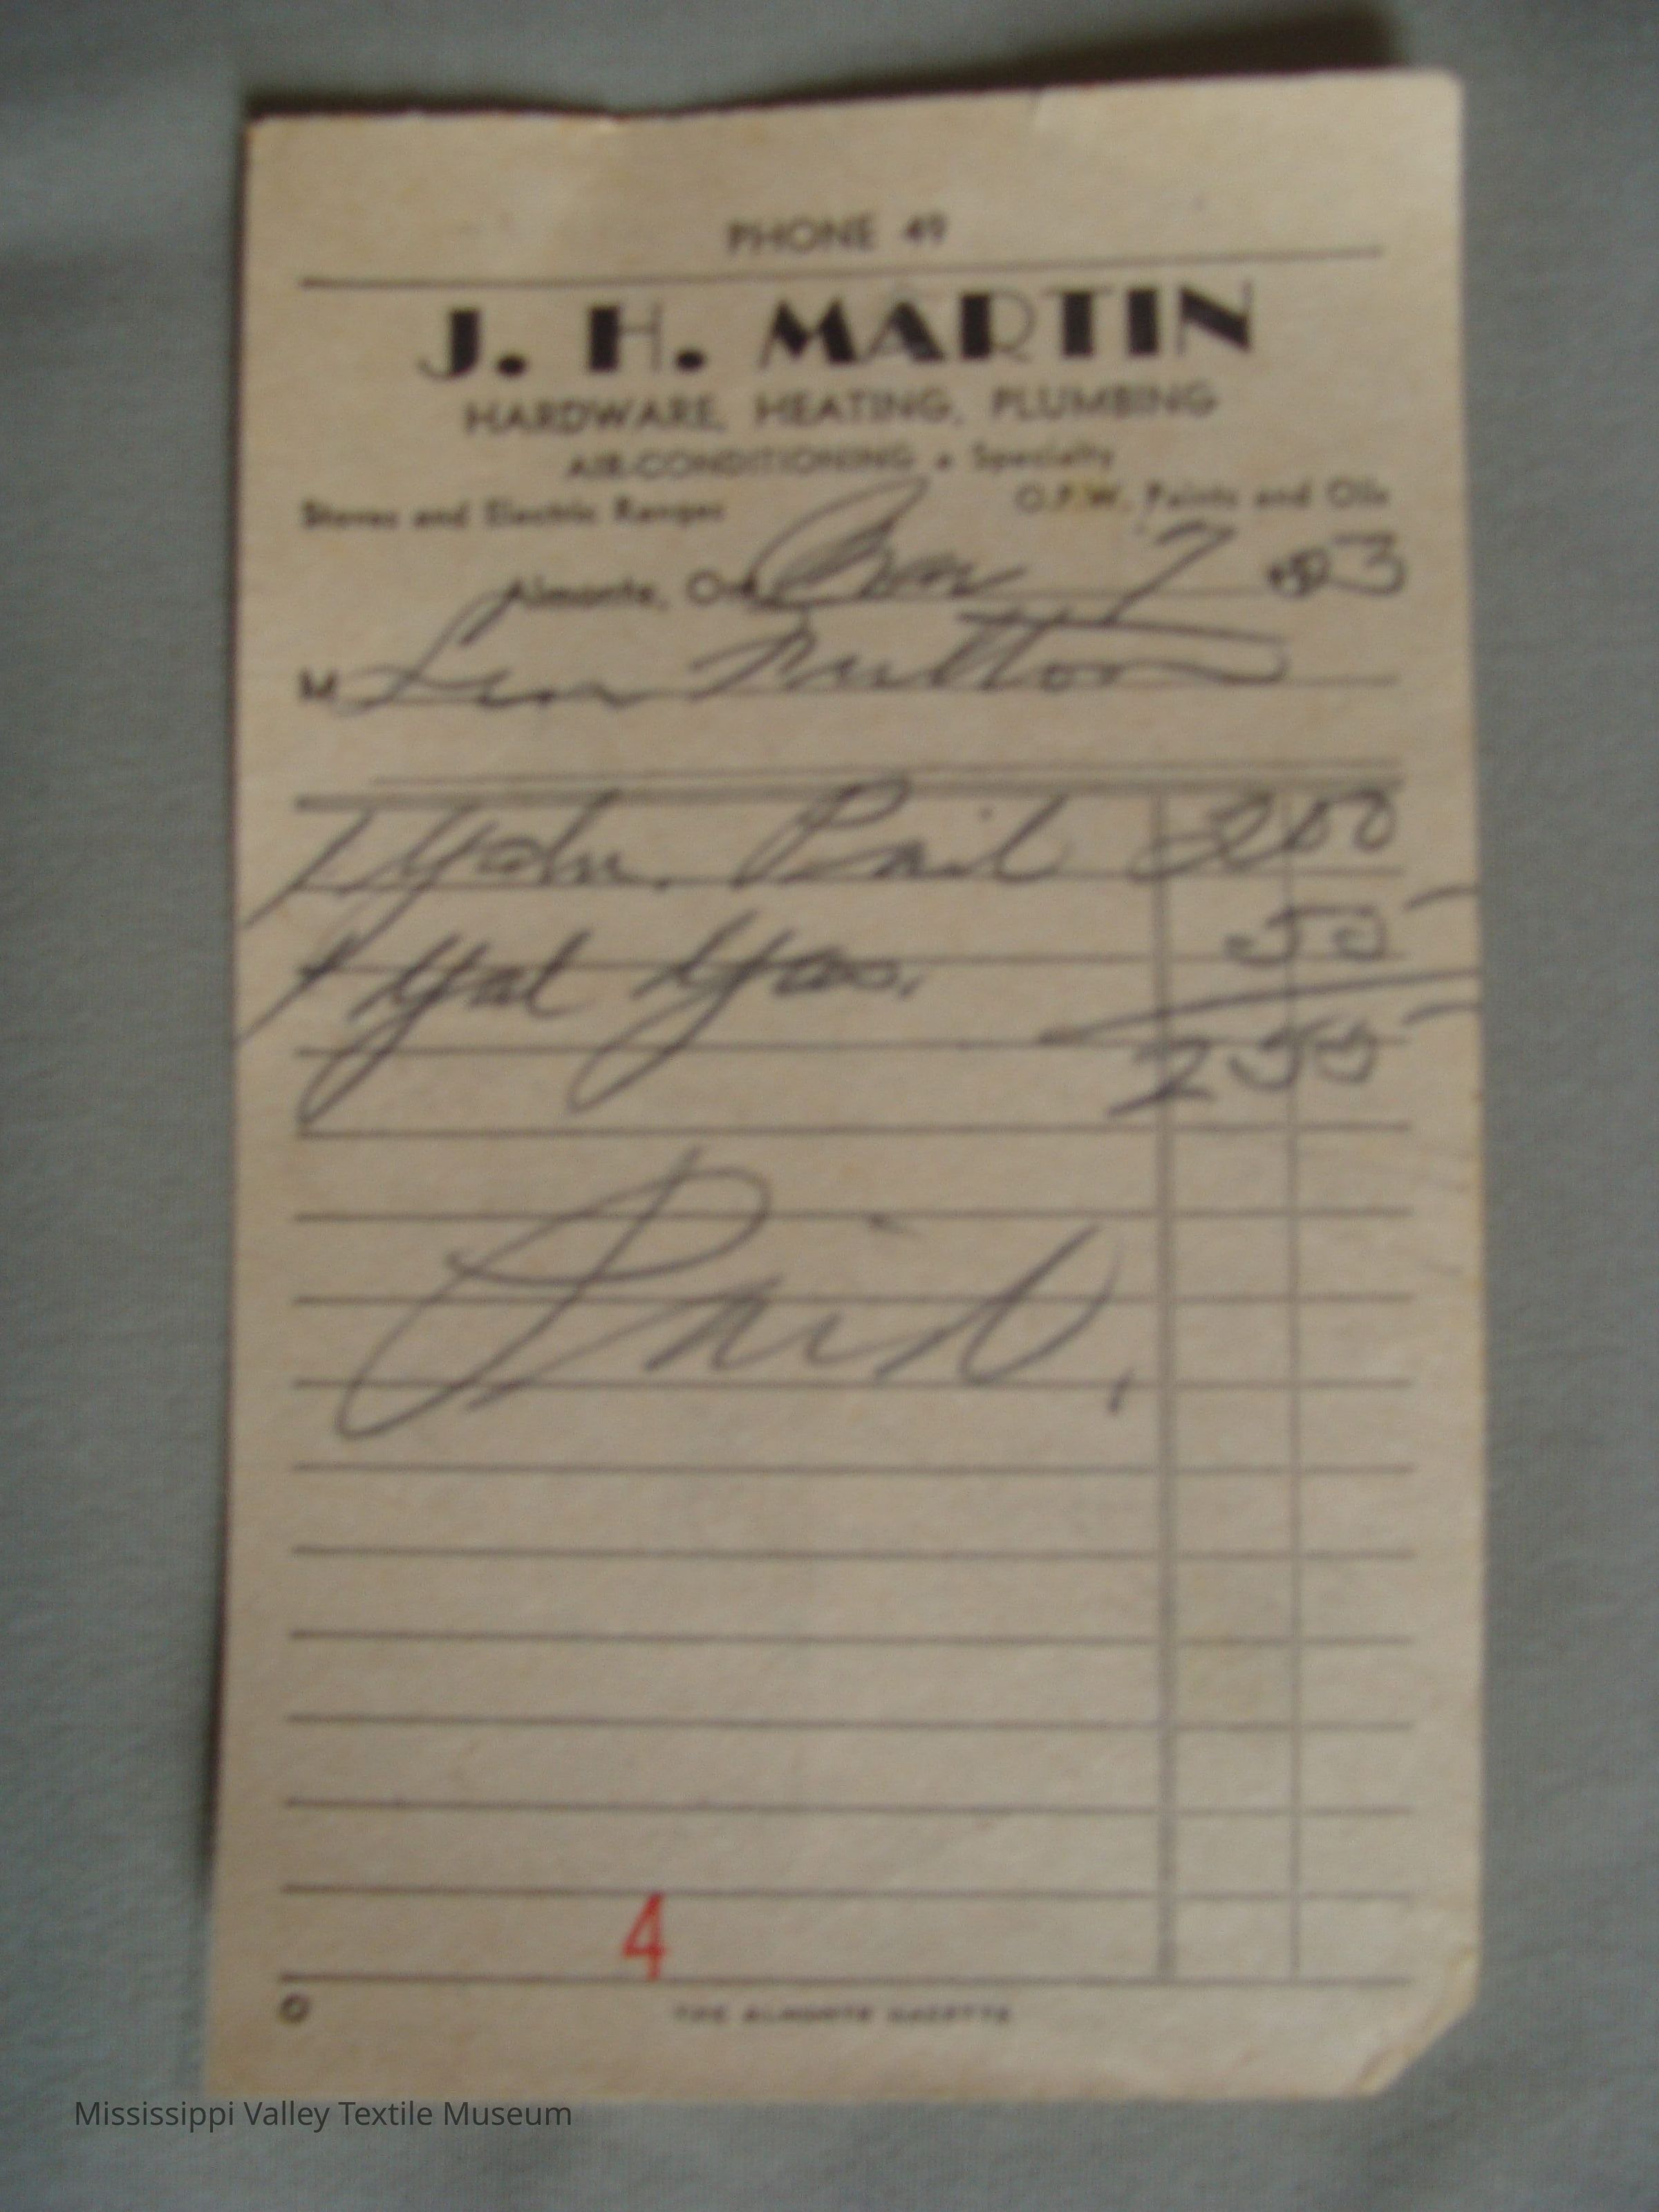 PHONE 49
J. H. MARTIN
HARDWARE, HEATING, PLUMBING
AIR-CONDITIONING a Specialty
Stoves and Electric Ranges O.P.W. Paints and Oils
Almonte, Ont. 7 53
M Len
1 Pail 200
1 Gal Gas. 55
255
Paid.
4
THE ALMONTE GAZETTE
Mississippi Valley Textile Museum